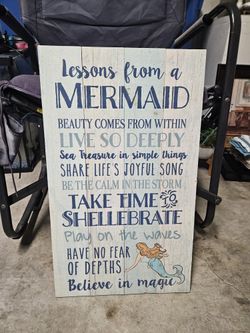 Lessons from a
MERMAID
BEAUTY COMES FROM WITHIN
LIVE SO DEEPLY
Sea Treasure in simple things
SHARE LIFE'S JOYFUL SONG
BE THE CALM IN THE STORM
TAKE TIME TO
SHELLEBRATE
Play on the waves
HAVE NO FEAR
OF DEPTHS
Believe in magic